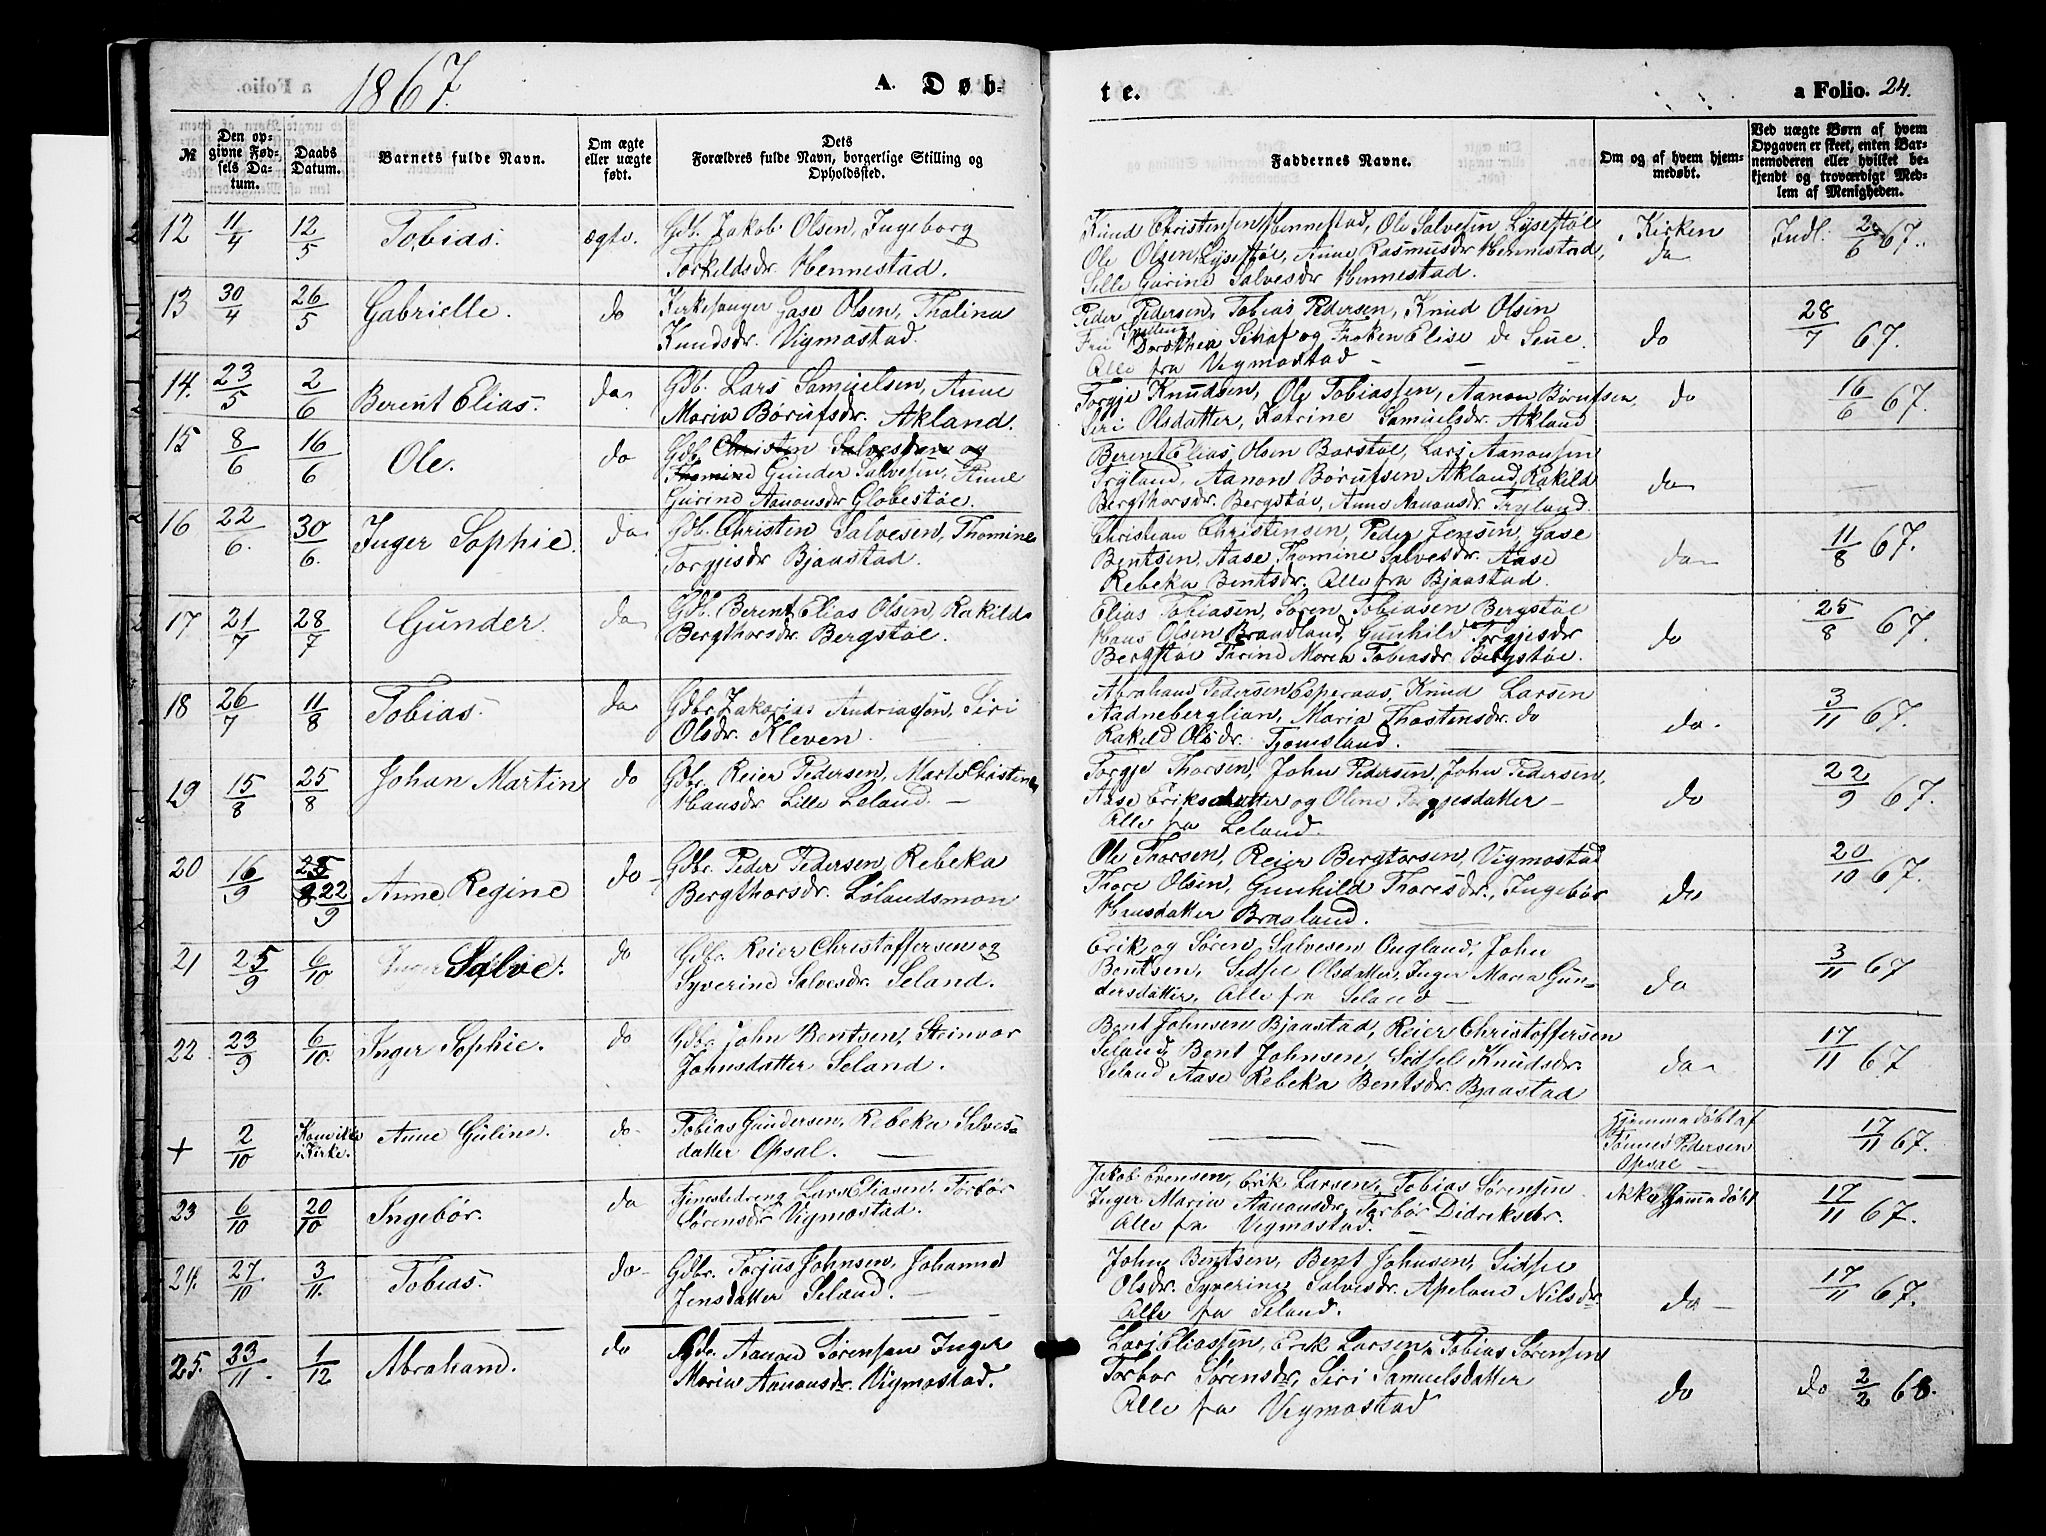 1867.
A. Døb-
te.
a Folio. 24.
№
Den op-
givne Fød-
sels Da-
tum.
Daabs
Datum.
Barnets fulde Navn.
Om ægte
eller uægte
født.
Dets
Forældres fulde Navn, borgerlige Stilling og
Opholdssted.
Faddernes Navne.
Om og af hvem hjem-
medøbt.
Ved uægte Børn af hvem
Opgaven er skeet, enten Bar-
nemoderen eller hvilket be-
kjendt og troværdigt Med-
lem af Menigheden.
12 11/4 12/5 Tobias. ægte. Gdb. Jakob Olsen, Ingeborg
Torkildsdr. Hennestad.
Knud Christensen Hennestad, Ole Salvesen Lysestøl
Ole Olsen Lysestøl, Anne Rasmusdr Hennestad,
Sille Gurine Salvesdr Hennestad.
Kirken
do
Indl. 2/6 67.
13 30/4 26/5 Gabrielle. do Kirkesanger Gase Olsen, Thalina
Knudsdr. Vigmostad.
Peder Pedersen, Tobias Pedersen, Knud Olsen
Fru Dorothea Schaf og Frøken Elise de Seue.
Alle fra Vegmostad
do 28/7 67.
14. 23/5 2/6 Berent Elias. do Gdb. Lars Samuelsen, Anne
Maria Børufsdr. Akland.
Torgje Knudsen, Ole Tobiassen, Aanon Børufsen,
Siri Olsdatter, Katrine Samuelsdr. Akland
do 16/6 67.
15 8/6 16/6 Ole. do Gdb. Christen Salvesen og
Thomine Gunder Salvesen, Anne
Gurine Aanonsdr Globestøl.
Berent Elias Olsen Barstøl, Lars Aanonsen
Tryland, Aanon Børufsen Akland, Rakild
Bergthorsdr. Bergstøl, Anne Aanonsdr. Tryland
do
16 22/6. 30/6. Inger Sophie. do Gdb. Christen Salvesen, Thomine
Torgjesdr Bjaastad.
Christian Christensen, Peder Jensen, Gase
Bentsen, Aase Thomine Salvesdr. Aase
Rebeka Bentsdr. Alle fra Bjaastad.
do 11/8 67.
17 21/7 28/7 Gunder. do Gdb. Berent Elias Olsen, Rakild
Bergthorsdr. Bergstøl.
Elias Tobiasen, Søren Tobiasen Bergstøl
Hans Olsen Braadland, Gunhild Torgjesdr
Bergstøl Thrine Maren Tobiasdr. Bergstøl.
do 25/8 67.
18 26/7 11/8 Tobias. do Gdbr. Zakarias Andreassen, Siri
Olsdr. Kleven.
Abraham Pedersen Esperaas, Knud Larsen
Aadneberglian, Maria Thostensdr. do
Rakild Olsdr. Tjomsland.
do. 3/11 67.
19 15/8 25/8 Johan Martin do Gdbr. Reier Pedersen, Marte Christine
Hansdr. Lille Leland.
Torgje Thorsen, John Pedersen, John Pedersen,
Aase Eriksdatter og Oline Torgjesdatter
Alle fra Leland.
do 22/9 67.
20 16/9 25/8 22/9 Anne Regine do Gdbr. Peder Pedersen, Rebeka
Bergthorsdr. Lølandsmon
Ole Thorsen, Reier Bergtorsen, Vigmostad
Thore Olsen, Gunhild Thoresdr., Ingebør
Hansdatter Braaland.
do 20/10 67.
21 25/9 6/10 Inger Salve. do Gdbr. Reier Christoffersen og
Syverine Salvesdr. Seland.
Erik og Søren Salvesen Ougland, John
Bentsen, Sidsel Olsdatter, Inger Maria Gun-
dersdatter, Alle fra Seland
do 3/11 67
22 23/9 6/10. Inger Sophie. do Gdbr. John Bentsen, Steinvor
Johnsdatter Seland.
Bent Johnsen Bjaastad, Reier Christoffersen
Seland, Bent Johnsen, Sidsel Knudsdr.
Seland Aase Rebeka Bentsdr. Bjaastad
do 17/11 67
+ 2/10 Kom ikke
i Kirke. Anne Guline. do Tobias Gundersen, Rebeka Salves-
datter Opsal.
Hjemmedøbt af
Tønnes Pedersen
Opsal
17/11 67.
23 6/10 20/10 Ingebør. do Tjenestedreng Lars Eliasen, Torbør
Sørensdr Vigmostad.
Jakob Evensen, Erik Larsen, Tobias Sørensen
Inger Maria Aanonsdr. Torbor Didriksdr.
Alle fra Vegmostad.
ikke hjemmedøbt 17/11 67.
24. 27/10 3/11. Tobias. do Gdbr. Torjus Johnsen, Johanne
Jensdatter Seland.
John Bentsen, Bent Johnsen, Sidsel
Olsdr. Syverine Salvesdr. Apeland Nilsdr
Alle fra Seland.
do 17/11 67.
25. 23/11. 1/12 Abraham. do Gde. Aanon Sørensen Inger
Maria Aanonsdr. Vigmostad.
Lars Eliassen, Erik Larsen, Tobias Sørensen
Torbor Sørensdr, Siri Samuelsdatter
Alle fra Vegmostad
do do 2/2 68.